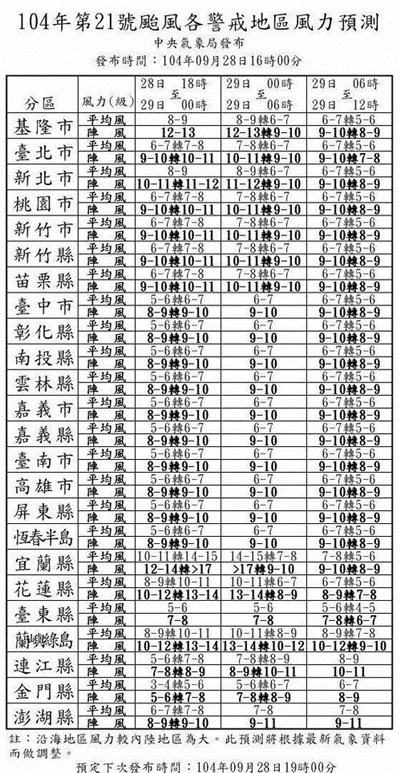 104年第21號颱風各警戒地區風力預測
中央氣象局發布
發布時間：104年09月28日16時00分
分區 風力(級) 28日 18時 至 29日 00時 29日 00時 至 29日 06時 29日 06時 至 29日 12時
基隆市 平均風 8-9 8-9轉6-7 6-7轉5-6
陣風 12-13 12-13轉9-10 9-10轉8-9
臺北市 平均風 6-7轉7-8 7-8轉6-7 6-7轉5-6
陣風 9-10轉10-11 10-11轉9-10 9-10轉7-8
新北市 平均風 8-9 8-9轉6-7 6-7轉5-6
陣風 10-11轉11-12 11-12轉9-10 9-10轉8-9
桃園市 平均風 6-7轉7-8 7-8轉6-7 6-7轉5-6
陣風 9-10轉10-11 10-11轉9-10 9-10轉8-9
新竹市 平均風 6-7轉7-8 7-8轉6-7 6-7轉5-6
陣風 9-10轉10-11 10-11轉9-10 9-10轉8-9
新竹縣 平均風 6-7轉7-8 7-8轉6-7 6-7轉5-6
陣風 9-10轉10-11 10-11轉9-10 9-10轉8-9
苗栗縣 平均風 6-7轉7-8 7-8轉6-7 6-7轉5-6
陣風 9-10轉10-11 10-11轉9-10 9-10轉8-9
臺中市 平均風 5-6轉6-7 6-7 6-7轉5-6
陣風 8-9轉9-10 9-10 9-10轉8-9
彰化縣 平均風 5-6轉6-7 6-7 6-7轉5-6
陣風 8-9轉9-10 9-10 9-10轉8-9
南投縣 平均風 5-6轉6-7 6-7 6-7轉5-6
陣風 8-9轉9-10 9-10 9-10轉8-9
雲林縣 平均風 5-6轉6-7 6-7 6-7轉5-6
陣風 8-9轉9-10 9-10 9-10轉8-9
嘉義市 平均風 5-6轉6-7 6-7 6-7轉5-6
陣風 8-9轉9-10 9-10 9-10轉8-9
嘉義縣 平均風 5-6轉6-7 6-7 6-7轉5-6
陣風 8-9轉9-10 9-10 9-10轉8-9
臺南市 平均風 5-6轉6-7 6-7 6-7轉5-6
陣風 8-9轉9-10 9-10 9-10轉8-9
高雄市 平均風 5-6轉6-7 6-7 6-7轉5-6
陣風 8-9轉9-10 9-10 9-10轉8-9
屏東縣 平均風 5-6轉6-7 6-7 6-7轉5-6
陣風 8-9轉9-10 9-10 9-10轉8-9
恆春半島 平均風 5-6轉6-7 6-7 6-7轉5-6
陣風 8-9轉9-10 9-10 9-10轉8-9
宜蘭縣 平均風 10-11轉14-15 14-15轉7-8 7-8轉5-6
陣風 12-14轉>17 >17轉9-10 9-10轉8-9
花蓮縣 平均風 8-9轉10-11 10-11轉6-7 6-7轉5-6
陣風 10-12轉13-14 13-14轉8-9 8-9轉7-8
臺東縣 平均風 5-6 5-6 5-6轉4-5
陣風 7-8 7-8 7-8轉6-7
蘭嶼綠島 平均風 8-9轉10-11 10-11轉8-9 8-9轉7-8
陣風 10-12轉13-14 13-14轉10-12 10-12轉9-10
連江縣 平均風 5-6轉7-8 7-8轉8-9 8-9
陣風 7-8轉8-9 8-9轉10-11 10-11
金門縣 平均風 3-4轉5-6 5-6轉6-7 6-7
陣風 5-6轉7-8 7-8轉8-9 8-9
澎湖縣 平均風 6-7轉7-8 7-8 7-8
陣風 8-9轉9-10 9-11 9-11
註：沿海地區風力較內陸地區為大。此預測將根據最新氣象資料
而做調整。
預定下次發布時間：104年09月28日19時00分